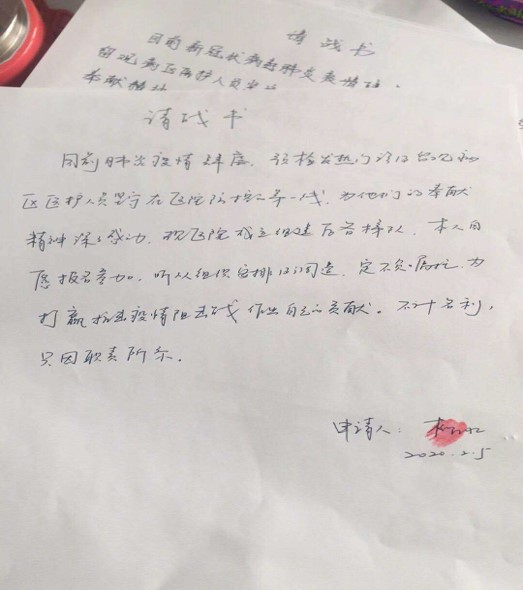 请战书
目前新冠状病毒肺炎疫情
医护人员
请战书
目前肺炎疫情肆虐，预检发热门诊及留观病
区医护人员坚守在医院防控第一线，为他们的奉献
精神深深感动，我医院成立组建后备梯队，本人自
愿报名参加，听从组织安排及调遣，定不负厚望，为
打赢抗击疫情阻击战作出自己的贡献。不计名利，
只因职责所系。
申请人：
2020.2.5